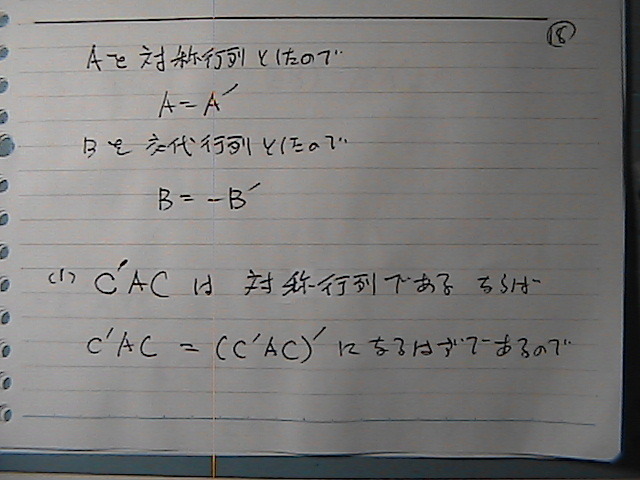 ⑱
Aを対称行列としたので
A=A′
Bを交代行列としたので
B=-B′
(1) C′AC は 対称行列である ならば
C′AC = (C′AC)′ になるはずであるので